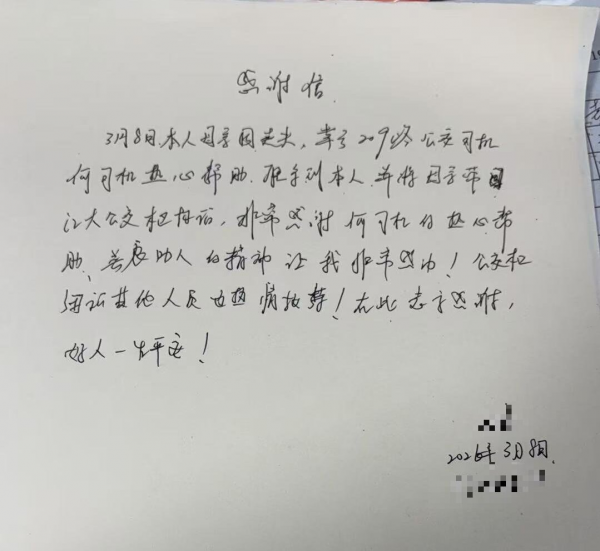 感谢信
3月8日本人母亲因走失,幸亏209路公交司机
何司机热心帮助 联系到本人 并将母亲带回
江大公交枢纽站,非常感谢何司机的热心帮
助、善良助人的精神让我非常感动!公交枢
纽站其他人员也热情接待!在此表示感谢,
好人一生平安!
2026年3月8日